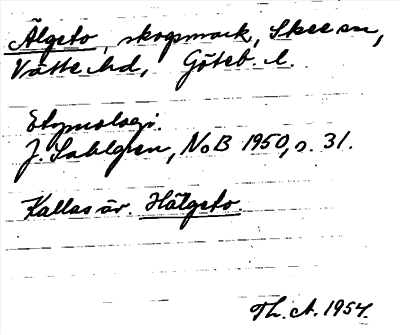 Älgeto, skogsmark, Skee sn,
Vätte hd, Göteb. l.
Etymologi.
J. Sahlgren, NoB 1950, s. 31.
Kallas äv. Hälgeto.
Th. A. 1954.